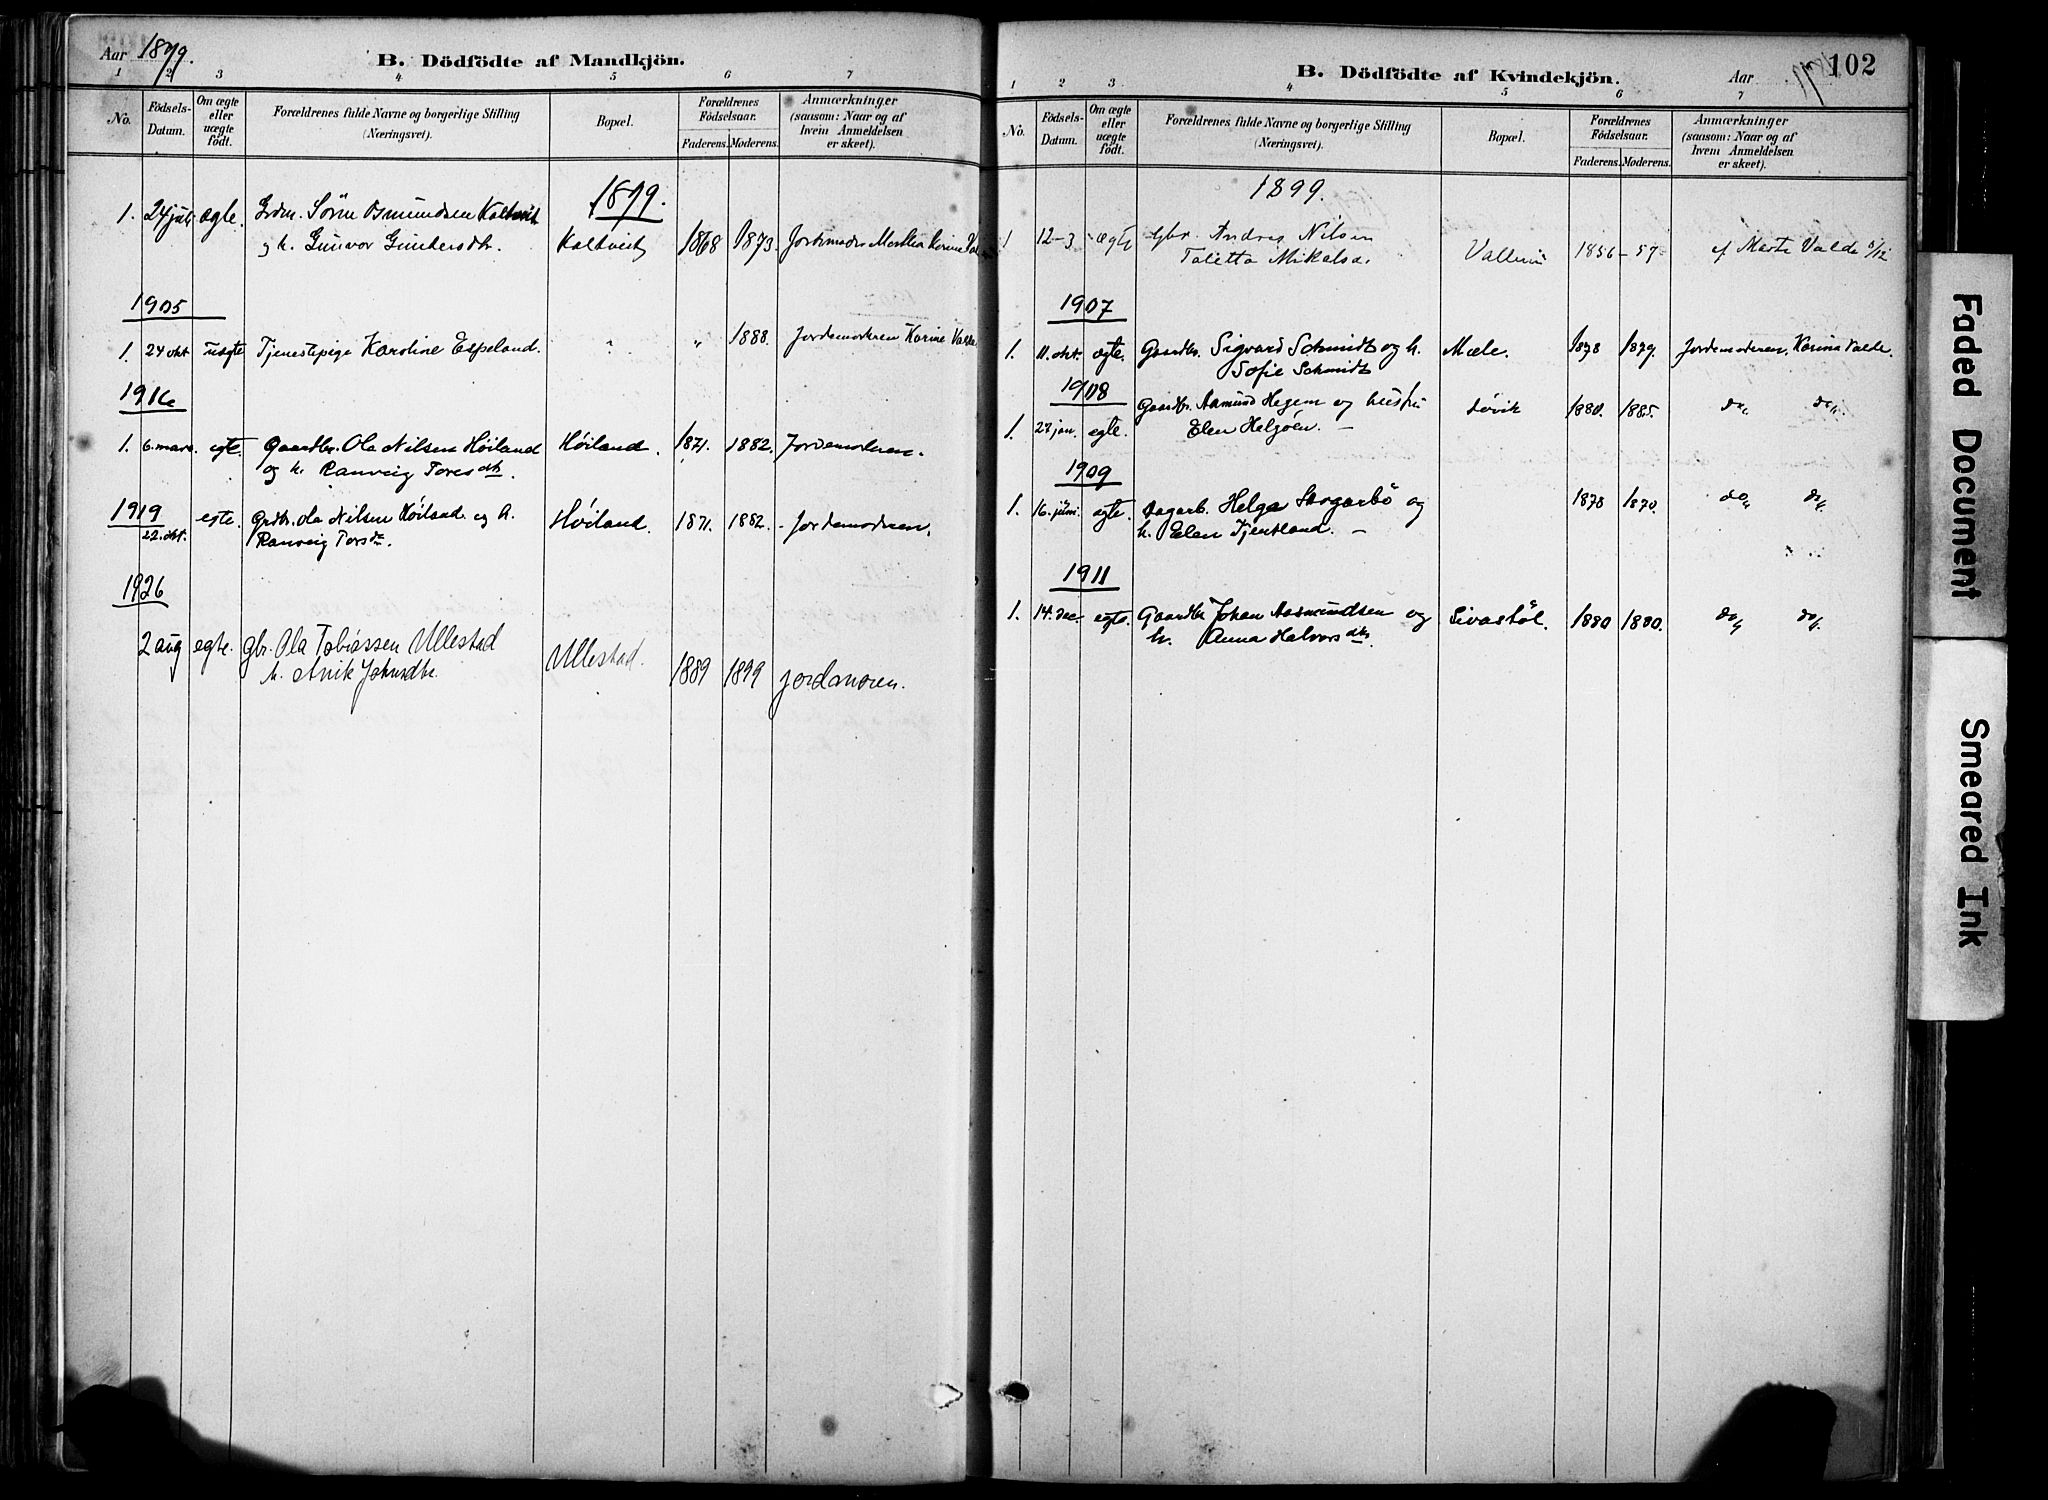 Aar 1899.
B. Dödfödte af Mandkjön.
1 2 3 4 5 6 7
No.
Födsels-Datum.
Om ægte eller uægte födt.
Forældrenes fulde Navne og borgerlige Stilling (Næringsvei).
Bopæl.
Forældrenes Födselsaar.
Faderens. Moderens.
Anmærkninger (saasom: Naar og af hvem Anmeldelsen er skeet).
1899.
1. 24 juli ægte. Grdm. Sørine Osmundsen Kaltveit
og h. Gunvor Gundersdtr. Kaltveit 1868 1873 Jordemoder Martha Karine
1905
1. 24 okt uægte Tjenestepige Karoline Espeland. " " 1888. Jordemoderen Karine Valde
1916
1. 6. mars. egte. Gaardbr. Ola Nilsen Höiland Höiland. 1871. 1882. Jordemoderen.
og h. Ranveig Toresdtr.
1919
22. okt. egte. Grdbr. Ola Nilsen Höiland og h. Höiland. 1871. 1882. Jordemoderen.
Ranveig Torsdtr.
1926
2 aug egte. gbr. Ola Tobiassen Ullestad Ullestad. 1889 1899 jordmoren.
h. Anik Johnsdtr.
B. Dödfödte af Kvindekjön.
Aar
102
1 2 3 4 5 6 7
No.
Födsels-Datum.
Om ægte eller uægte födt.
Forældrenes fulde Navne og borgerlige Stilling (Næringsvei).
Bopæl.
Forældrenes Födselsaar.
Faderens. Moderens.
Anmærkninger (saasom: Naar og af hvem Anmeldelsen er skeet).
1899.
1 12-3 ægte Gbr. Andreas Nilsen
Taletta Mikalsd. 1856 - 57 af Marte Valde
1907
1. 11. okt. ægte. Gaardbr. Sigvard Schmidt og h. Mæle. 1878 1879. Jordemoderen. Karine Valde.
Sofie Schmidt
1908
Gaardbr. Aamund Hegem og hustru Lövik 1880. 1885. do. do.
1. 27 jan. egte. Elen Helgöen. -
1909
1. 16. juni. egte. Dagarb. Helge Skogarbö og 1878 1870. do. do.
h. Elen Tjentland. -
1911
1. 14. dec. egte. Gaardbr. Johan Aasmundsen og Sivastöl. 1880 1880. do. do.
h. Anna Halvorsdtr.
Faded Document
Smeared Ink